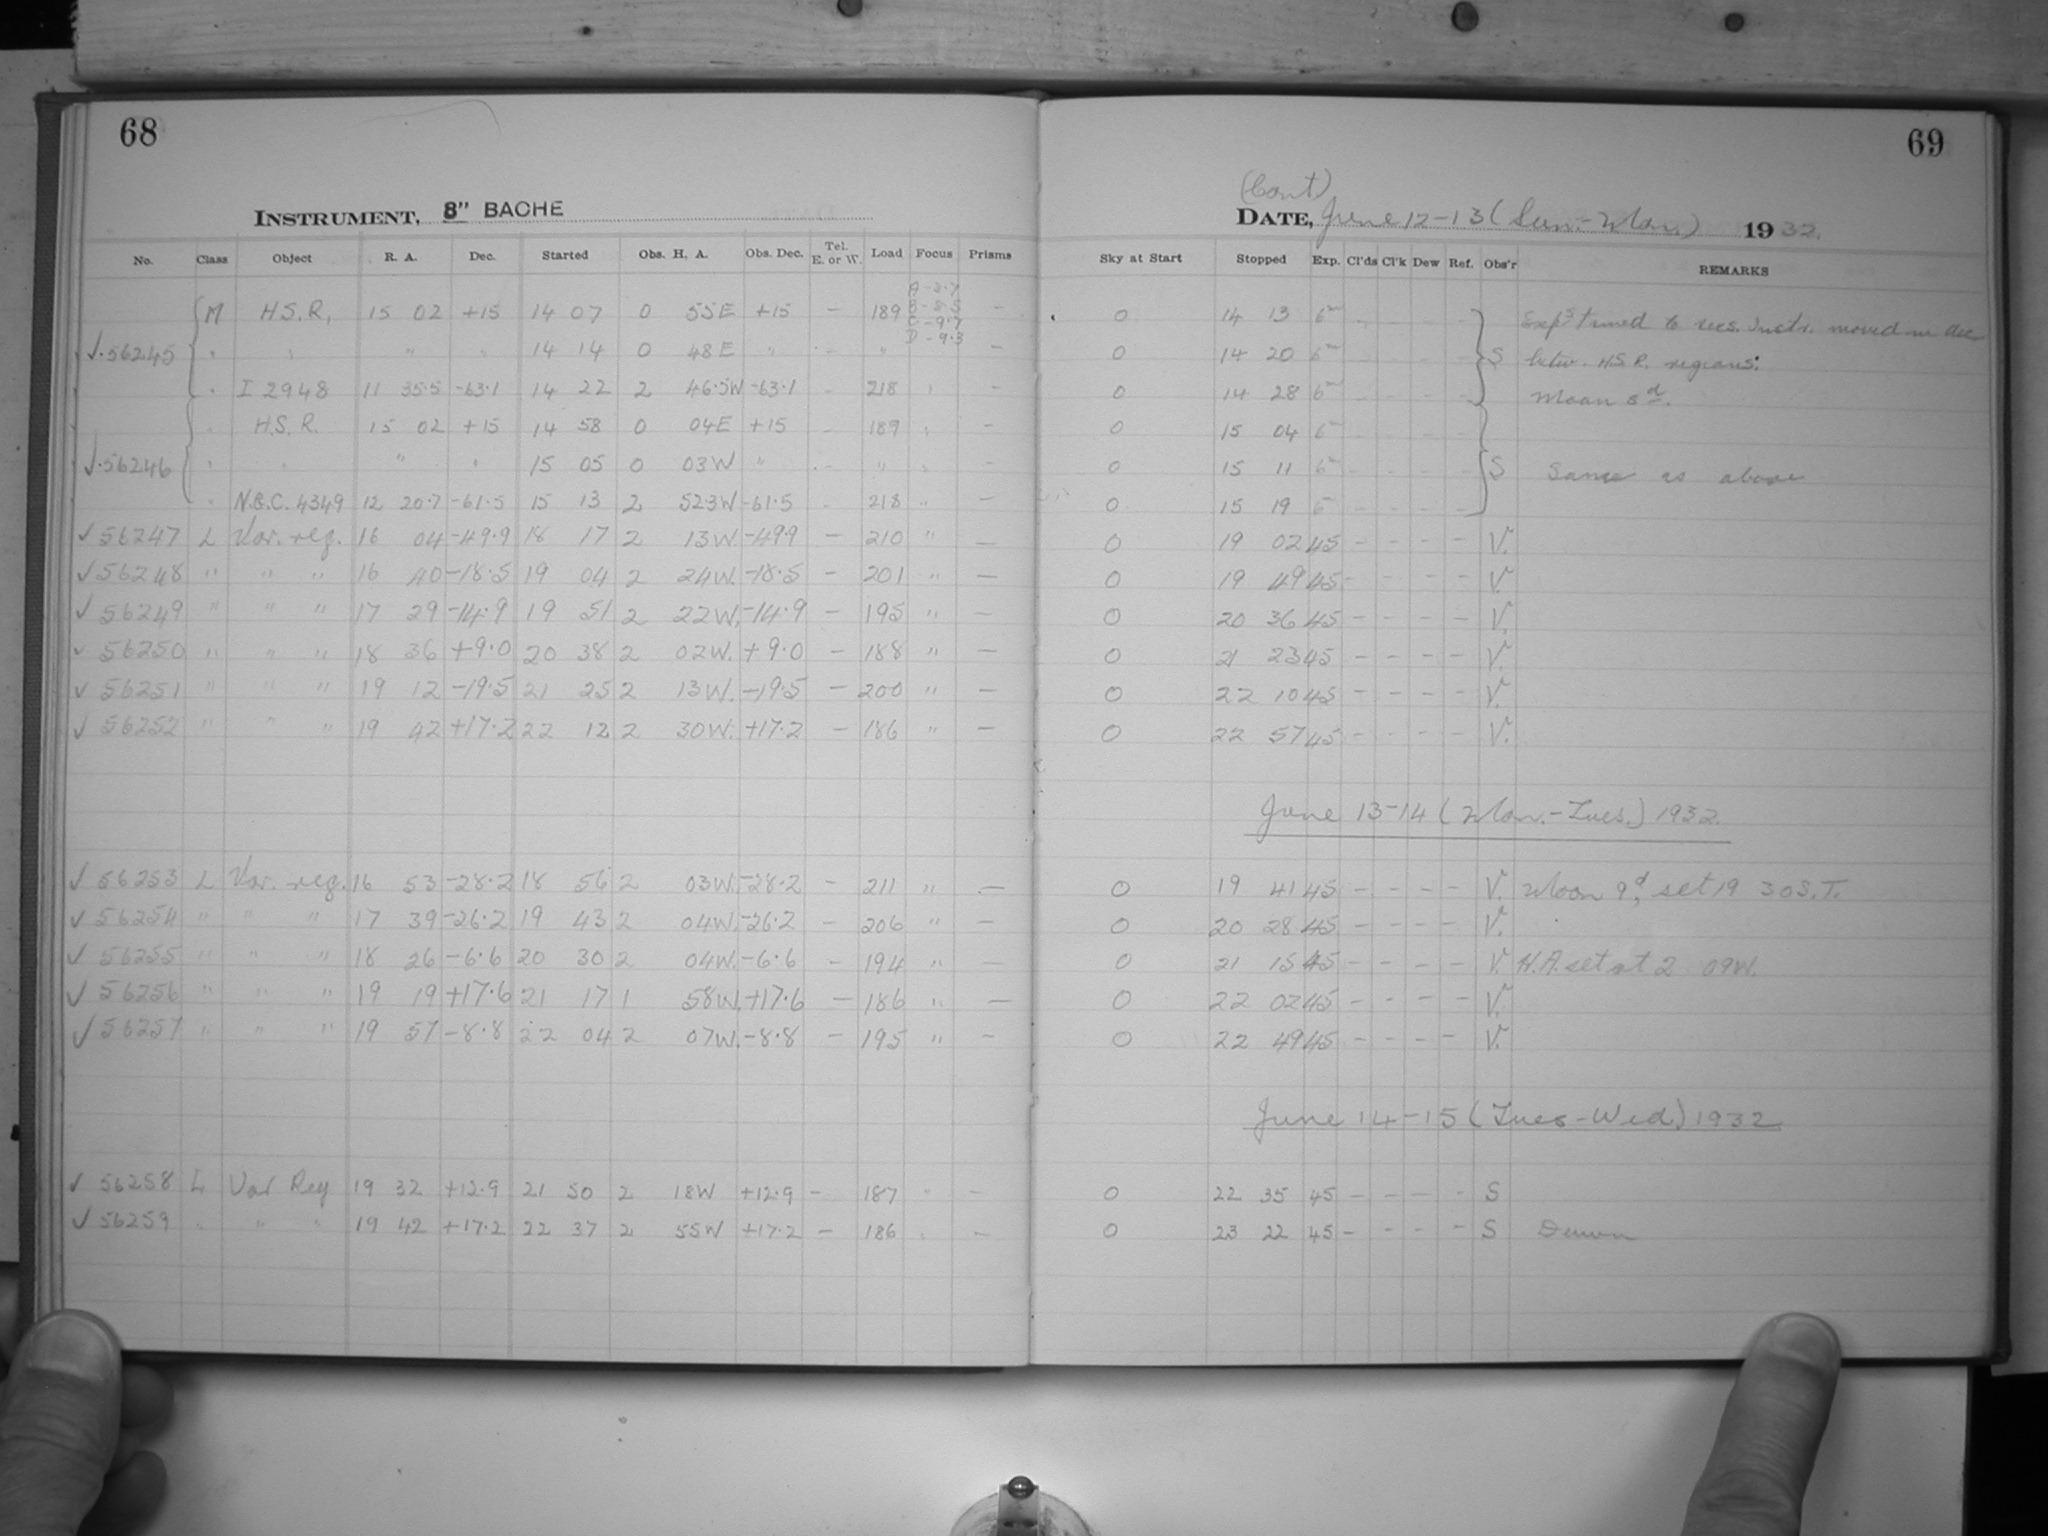 68
INSTRUMENT, 8" BACHE
No. Class Object R. A. Dec. Started Obs. H. A. Obs. Dec. Tel. E. or W. Load Focus Prisms
M H.S.R. 15 02 +15 14 07 0 55E +15 - 189 A-8.7 B-8.5 C-9.7 D-9.3 -
√ 56245 " " " " 14 14 0 48E " - " -
" I 2948 11 35.5 -63.1 14 22 2 46.5W -63.1 - 218 " -
" H.S.R. 15 02 +15 14 58 0 04E +15 - 189 " -
√ 56246 " " " " 15 05 0 03W " - " " -
" N.G.C. 4349 12 20.7 -61.5 15 13 2 52.3W -61.5 - 218 " -
√ 56247 L Var. reg. 16 04 -49.9 18 17 2 13W -49.9 - 210 " -
√ 56248 " " " 16 40 -18.5 19 04 2 24W. -18.5 - 201 " -
√ 56249 " " " 17 29 -14.9 19 51 2 22W. -14.9 - 195 " -
√ 56250 " " " 18 36 +9.0 20 38 2 02W. +9.0 - 188 " -
√ 56251 " " " 19 12 -19.5 21 25 2 13W. -19.5 - 200 " -
√ 56252 " " " 19 42 +17.2 22 12 2 30W. +17.2 - 186 " -
√ 56253 L Var. reg. 16 53 -28.2 18 56 2 03W. -28.2 - 211 " -
√ 56254 " " " 17 39 -26.2 19 43 2 04W. -26.2 - 206 " -
√ 56255 " " " 18 26 -6.6 20 30 2 04W. -6.6 - 194 " -
√ 56256 " " " 19 19 +17.6 21 17 1 58W. +17.6 - 186 " -
√ 56257 " " " 19 57 -8.8 22 04 2 07W. -8.8 - 195 " -
√ 56258 L Var Reg 19 32 +12.9 21 50 2 18W +12.9 - 187 " -
√ 56259 " " " 19 42 +17.2 22 37 2 55W +17.2 - 186 " -
69
(Cont)
DATE, June 12-13 (Sun.-Mon.) 1932.
Sky at Start Stopped Exp. Cl'ds Cl'k Dew Ref. Obs'r REMARKS
0 14 13 6m - - - - Exps timed to secs. Instr. moved in dec
0 14 20 6m - - - - S betw. H.S.R. regions.
0 14 28 6m - - - - Moon 8d.
0 15 04 6m - - - -
0 15 11 6m - - - - S Same as above
0 15 19 6m - - - -
0 19 02 45 - - - - V.
0 19 49 45 - - - - V.
0 20 36 45 - - - - V.
0 21 23 45 - - - - V.
0 22 10 45 - - - - V.
0 22 57 45 - - - - V.
June 13-14 (Mon.-Tues.) 1932.
0 19 41 45 - - - - V. Moon 9d, set 19 30 S.T.
0 20 28 45 - - - - V.
0 21 15 45 - - - - V. H.A. set at 2 09W.
0 22 02 45 - - - - V.
0 22 49 45 - - - - V.
June 14-15 (Tues-Wed) 1932
0 22 35 45 - - - - S
0 23 22 45 - - - - S Dawn